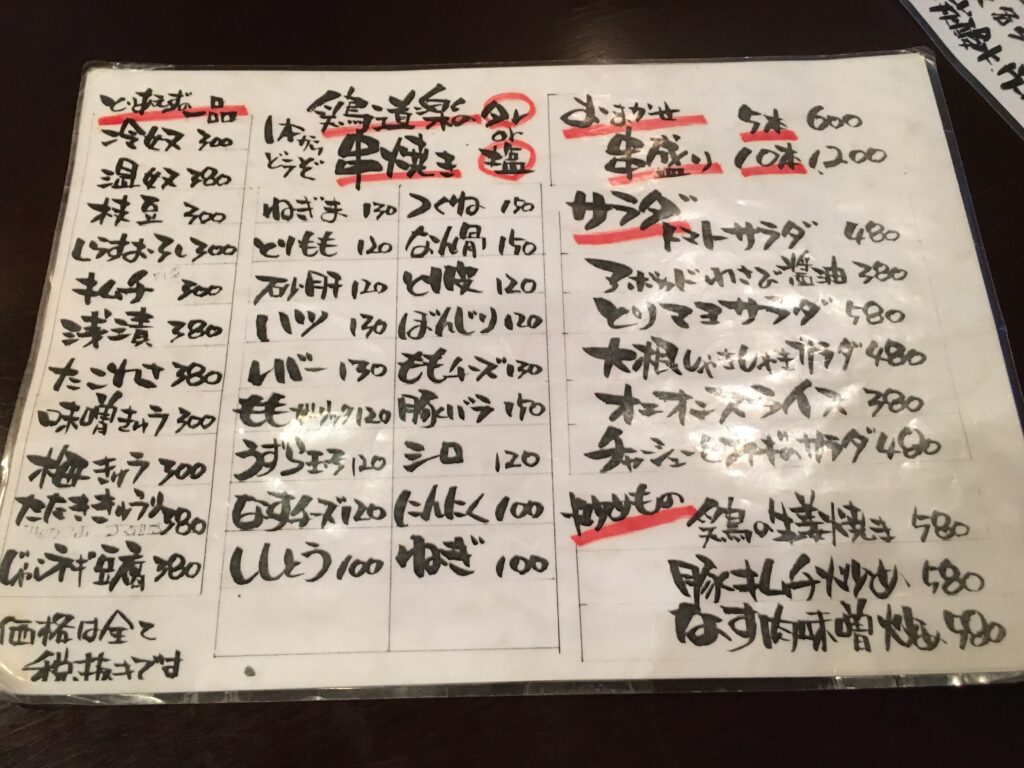 とりあえずの一品
冷奴 300
温奴 380
枝豆 300
しらすおろし 300
キムチ 300
浅漬 380
たこわさ 380
味噌きゅう 300
梅きゅう 300
たたききゅうり 380
じゃこネギ豆腐 380
価格は全て
税抜きです
1本から
どうぞ
鶏道楽の
串焼き
タレ
or
塩
ねぎま 130
とりもも 120
砂肝 120
ハツ 130
レバー 130
ももガーリック 120
うずら玉子 120
なすチーズ 120
ししとう 100
つくね 150
なん骨 150
とり皮 120
ぼんじり 120
ももチーズ 130
豚バラ 150
シロ 120
にんにく 100
ねぎ 100
おまかせ 5本 600
串盛り 10本 1,200
サラダ
トマトサラダ 480
アボカドわさび醤油 380
とりマヨサラダ 580
大根しゃきしゃきサラダ 480
オニオンスライス 380
チャーシューとネギのサラダ 480
炒めもの
鶏の生姜焼き 580
豚キムチ炒め 580
なす肉味噌炒め 480